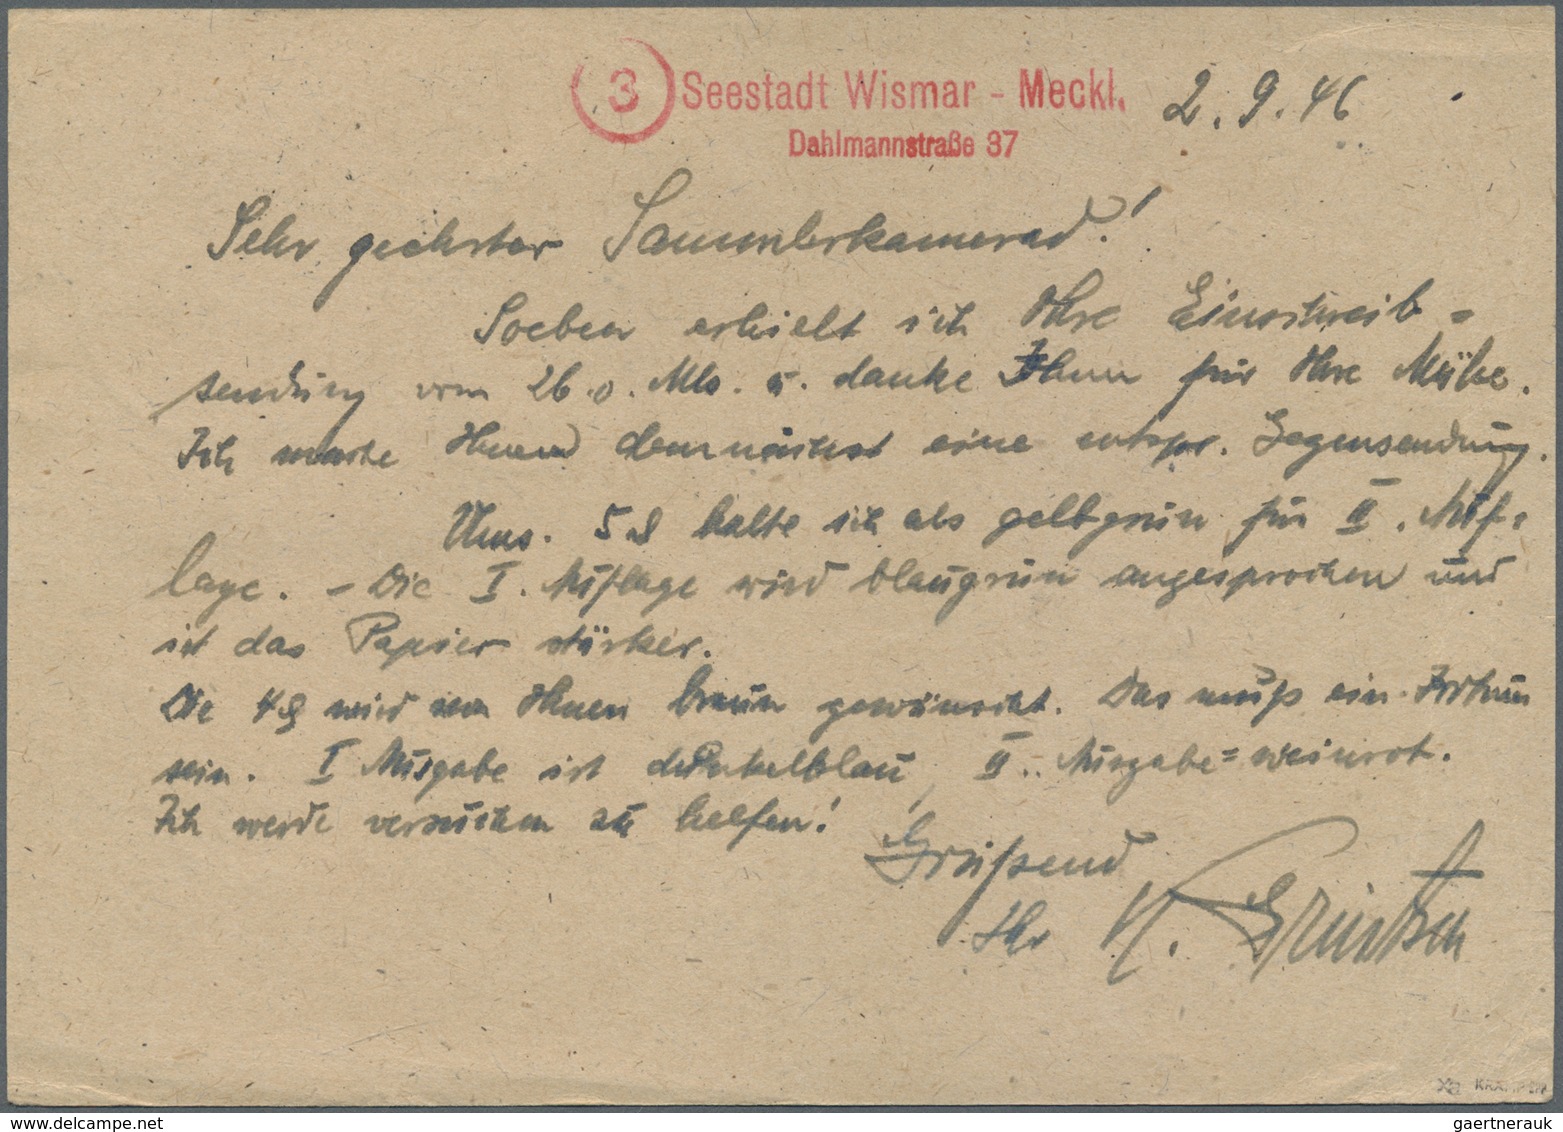 3 Seestadt Wismar - Meckl. 2.9.46
Dahlmannstraße 37
Sehr geehrter Sammlerkamerad!
Soeben erhielt ich Ihre Einschreib=
sendung vom 26.v. Mts. u. danke Ihnen für Ihre Mühe.
Ich mache Ihnen demnächst eine entspr. Gegensendung.
5 ₰ halte ich als gelbgrün für II. Auf=
lage. - Die I. Auflage wird blaugrün angesprochen und
ist das Papier stärker.
Die 4 ₰ wird von Ihnen braun gewünscht. Das muß ein Irrtum
sein. I Ausgabe ist dunkelblau, II. Ausgabe = weinrot.
Ich werde versuchen zu helfen!
Grüßend
Ihr
gaertnerauk.com